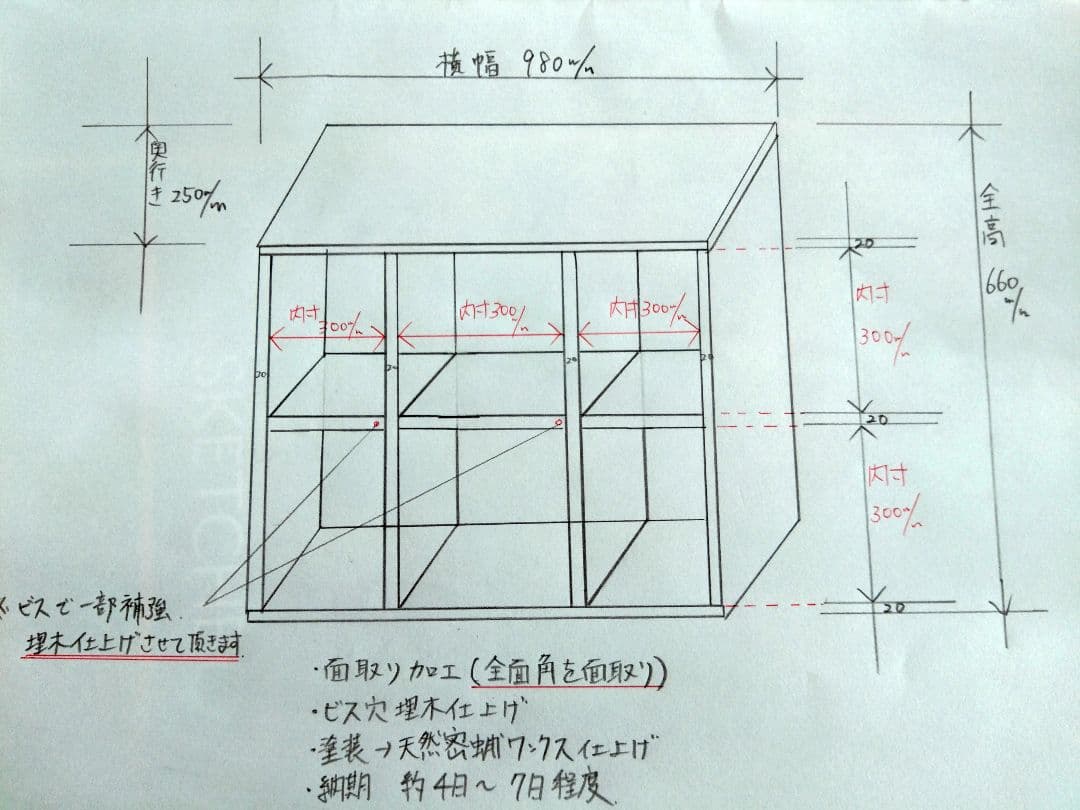 横幅 980m/m
奥行き 250m/m
全高 660m/m
20
内寸 300m/m
20
内寸 300m/m
20
内寸 300m/m
内寸 300m/m
内寸 300m/m
20
20
20
20
※ビスで一部補強
埋木仕上げさせて頂きます
・面取り加工(全面角を面取り)
・ビス穴埋木仕上げ
・塗装→天然密蝋ワックス仕上げ
・納期 約4日～7日程度